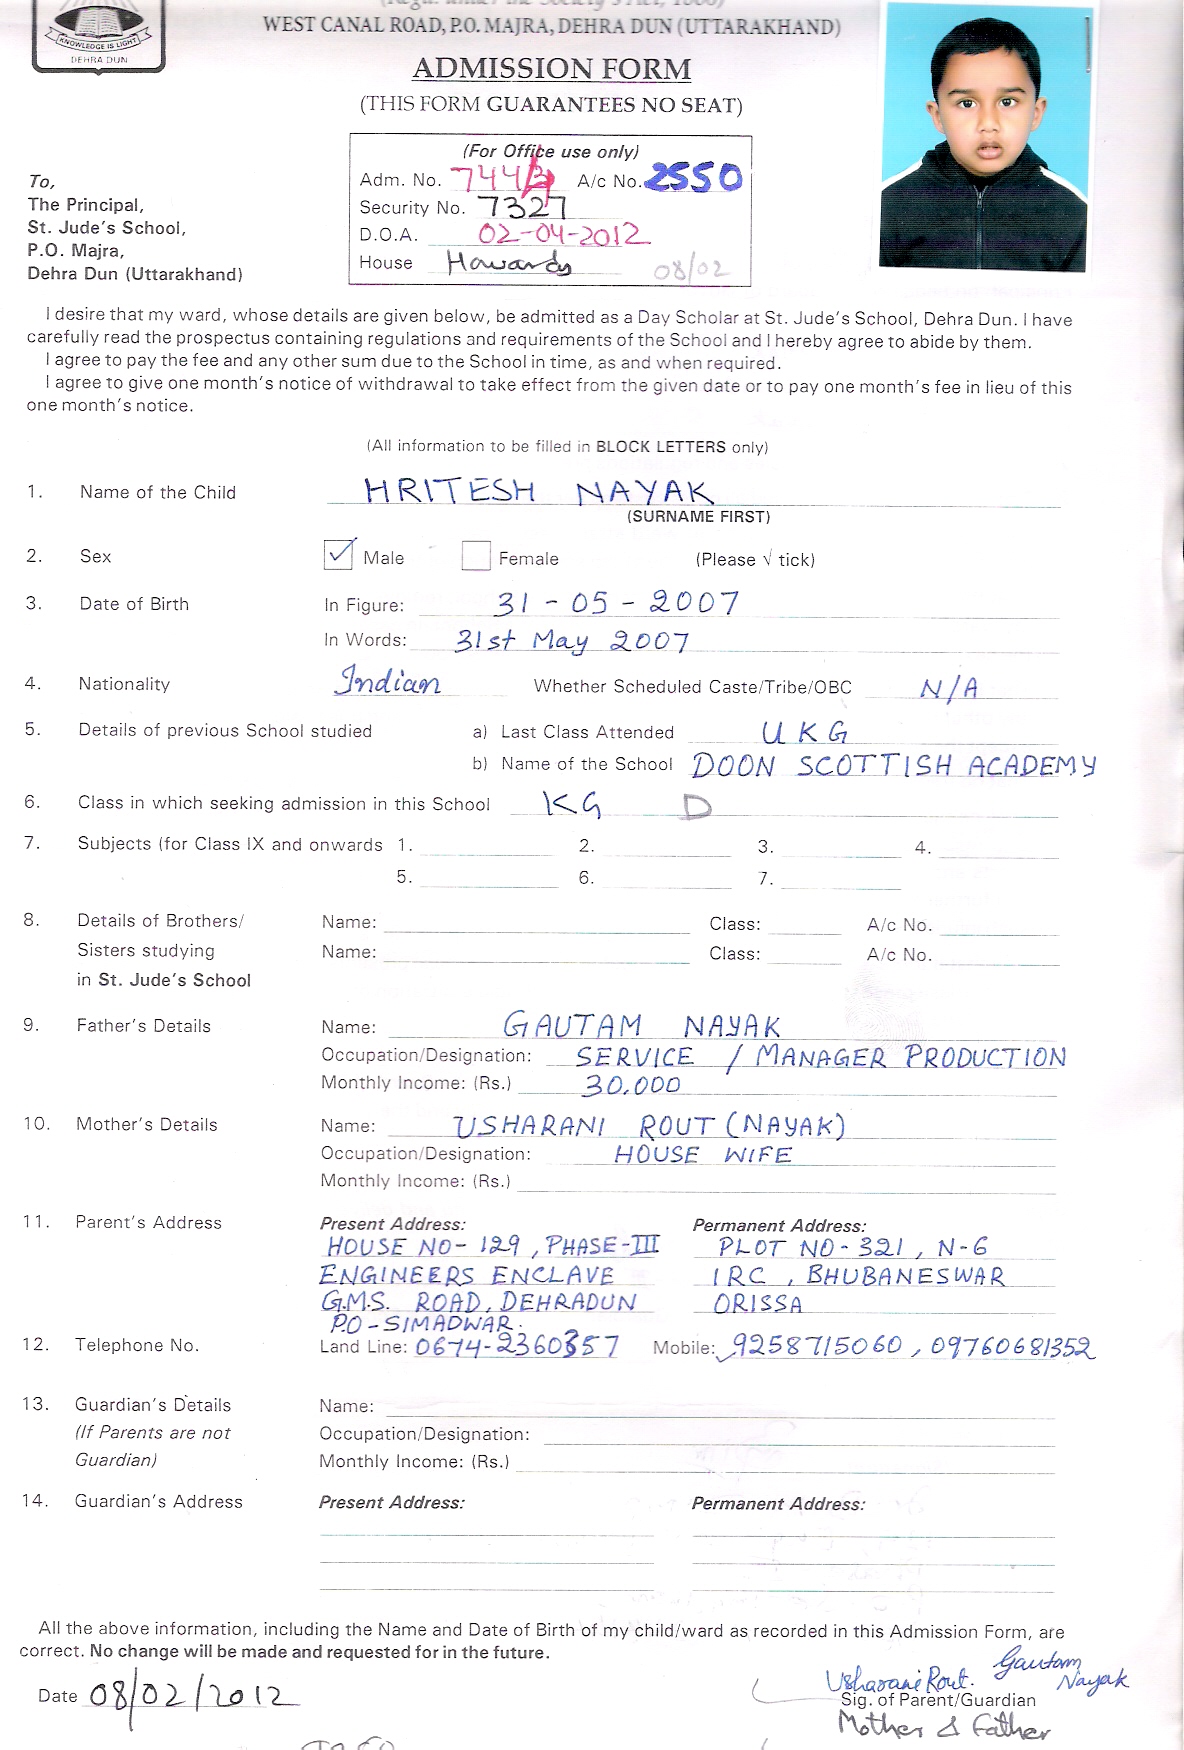 KNOWLEDGE IS LIGHT
DEHRA DUN
WEST CANAL ROAD, P.O. MAJRA, DEHRA DUN (UTTARAKHAND)
ADMISSION FORM
(THIS FORM GUARANTEES NO SEAT)
(For Office use only)
Adm. No. A/c No. 2550
Security No. 7327
D.O.A. 02-04-2012
House Howards 08/02
To,
The Principal,
St. Jude's School,
P.O. Majra,
Dehra Dun (Uttarakhand)
I desire that my ward, whose details are given below, be admitted as a Day Scholar at St. Jude's School, Dehra Dun. I have
carefully read the prospectus containing regulations and requirements of the School and I hereby agree to abide by them.
I agree to pay the fee and any other sum due to the School in time, as and when required.
I agree to give one month's notice of withdrawal to take effect from the given date or to pay one month's fee in lieu of this
one month's notice.
(All information to be filled in BLOCK LETTERS only)
1. Name of the Child HRITESH NAYAK
(SURNAME FIRST)
2. Sex Male Female (Please √ tick)
3. Date of Birth In Figure: 31 - 05 - 2007
In Words: 31st May 2007
4. Nationality Indian Whether Scheduled Caste/Tribe/OBC N/A
5. Details of previous School studied a) Last Class Attended UKG
b) Name of the School DOON SCOTTISH ACADEMY
6. Class in which seeking admission in this School KG D
7. Subjects (for Class IX and onwards 1. 2. 3. 4.
5. 6. 7.
8. Details of Brothers/ Name: Class: A/c No.
Sisters studying Name: Class: A/c No.
in St. Jude's School
9. Father's Details Name: GAUTAM NAYAK
Occupation/Designation: SERVICE / MANAGER PRODUCTION
Monthly Income: (Rs.) 30.000
10. Mother's Details Name: USHARANI ROUT (NAYAK)
Occupation/Designation: HOUSE WIFE
Monthly Income: (Rs.)
11. Parent's Address Present Address: Permanent Address:
HOUSE NO- 129, PHASE-III PLOT NO- 321, N-6
ENGINEERS ENCLAVE IRC, BHUBANESWAR
G.M.S. ROAD, DEHRADUN ORISSA
P.O - SIMADWAR.
12. Telephone No. Land Line: 0674-2360357 Mobile: 9258715060, 09760681352
13. Guardian's Details Name:
(If Parents are not Occupation/Designation:
Guardian) Monthly Income: (Rs.)
14. Guardian's Address Present Address: Permanent Address:
All the above information, including the Name and Date of Birth of my child/ward as recorded in this Admission Form, are
correct. No change will be made and requested for in the future.
Usharani Rout. Gautam Nayak
Date 08/02/2012 Sig. of Parent/Guardian
Mother & Father